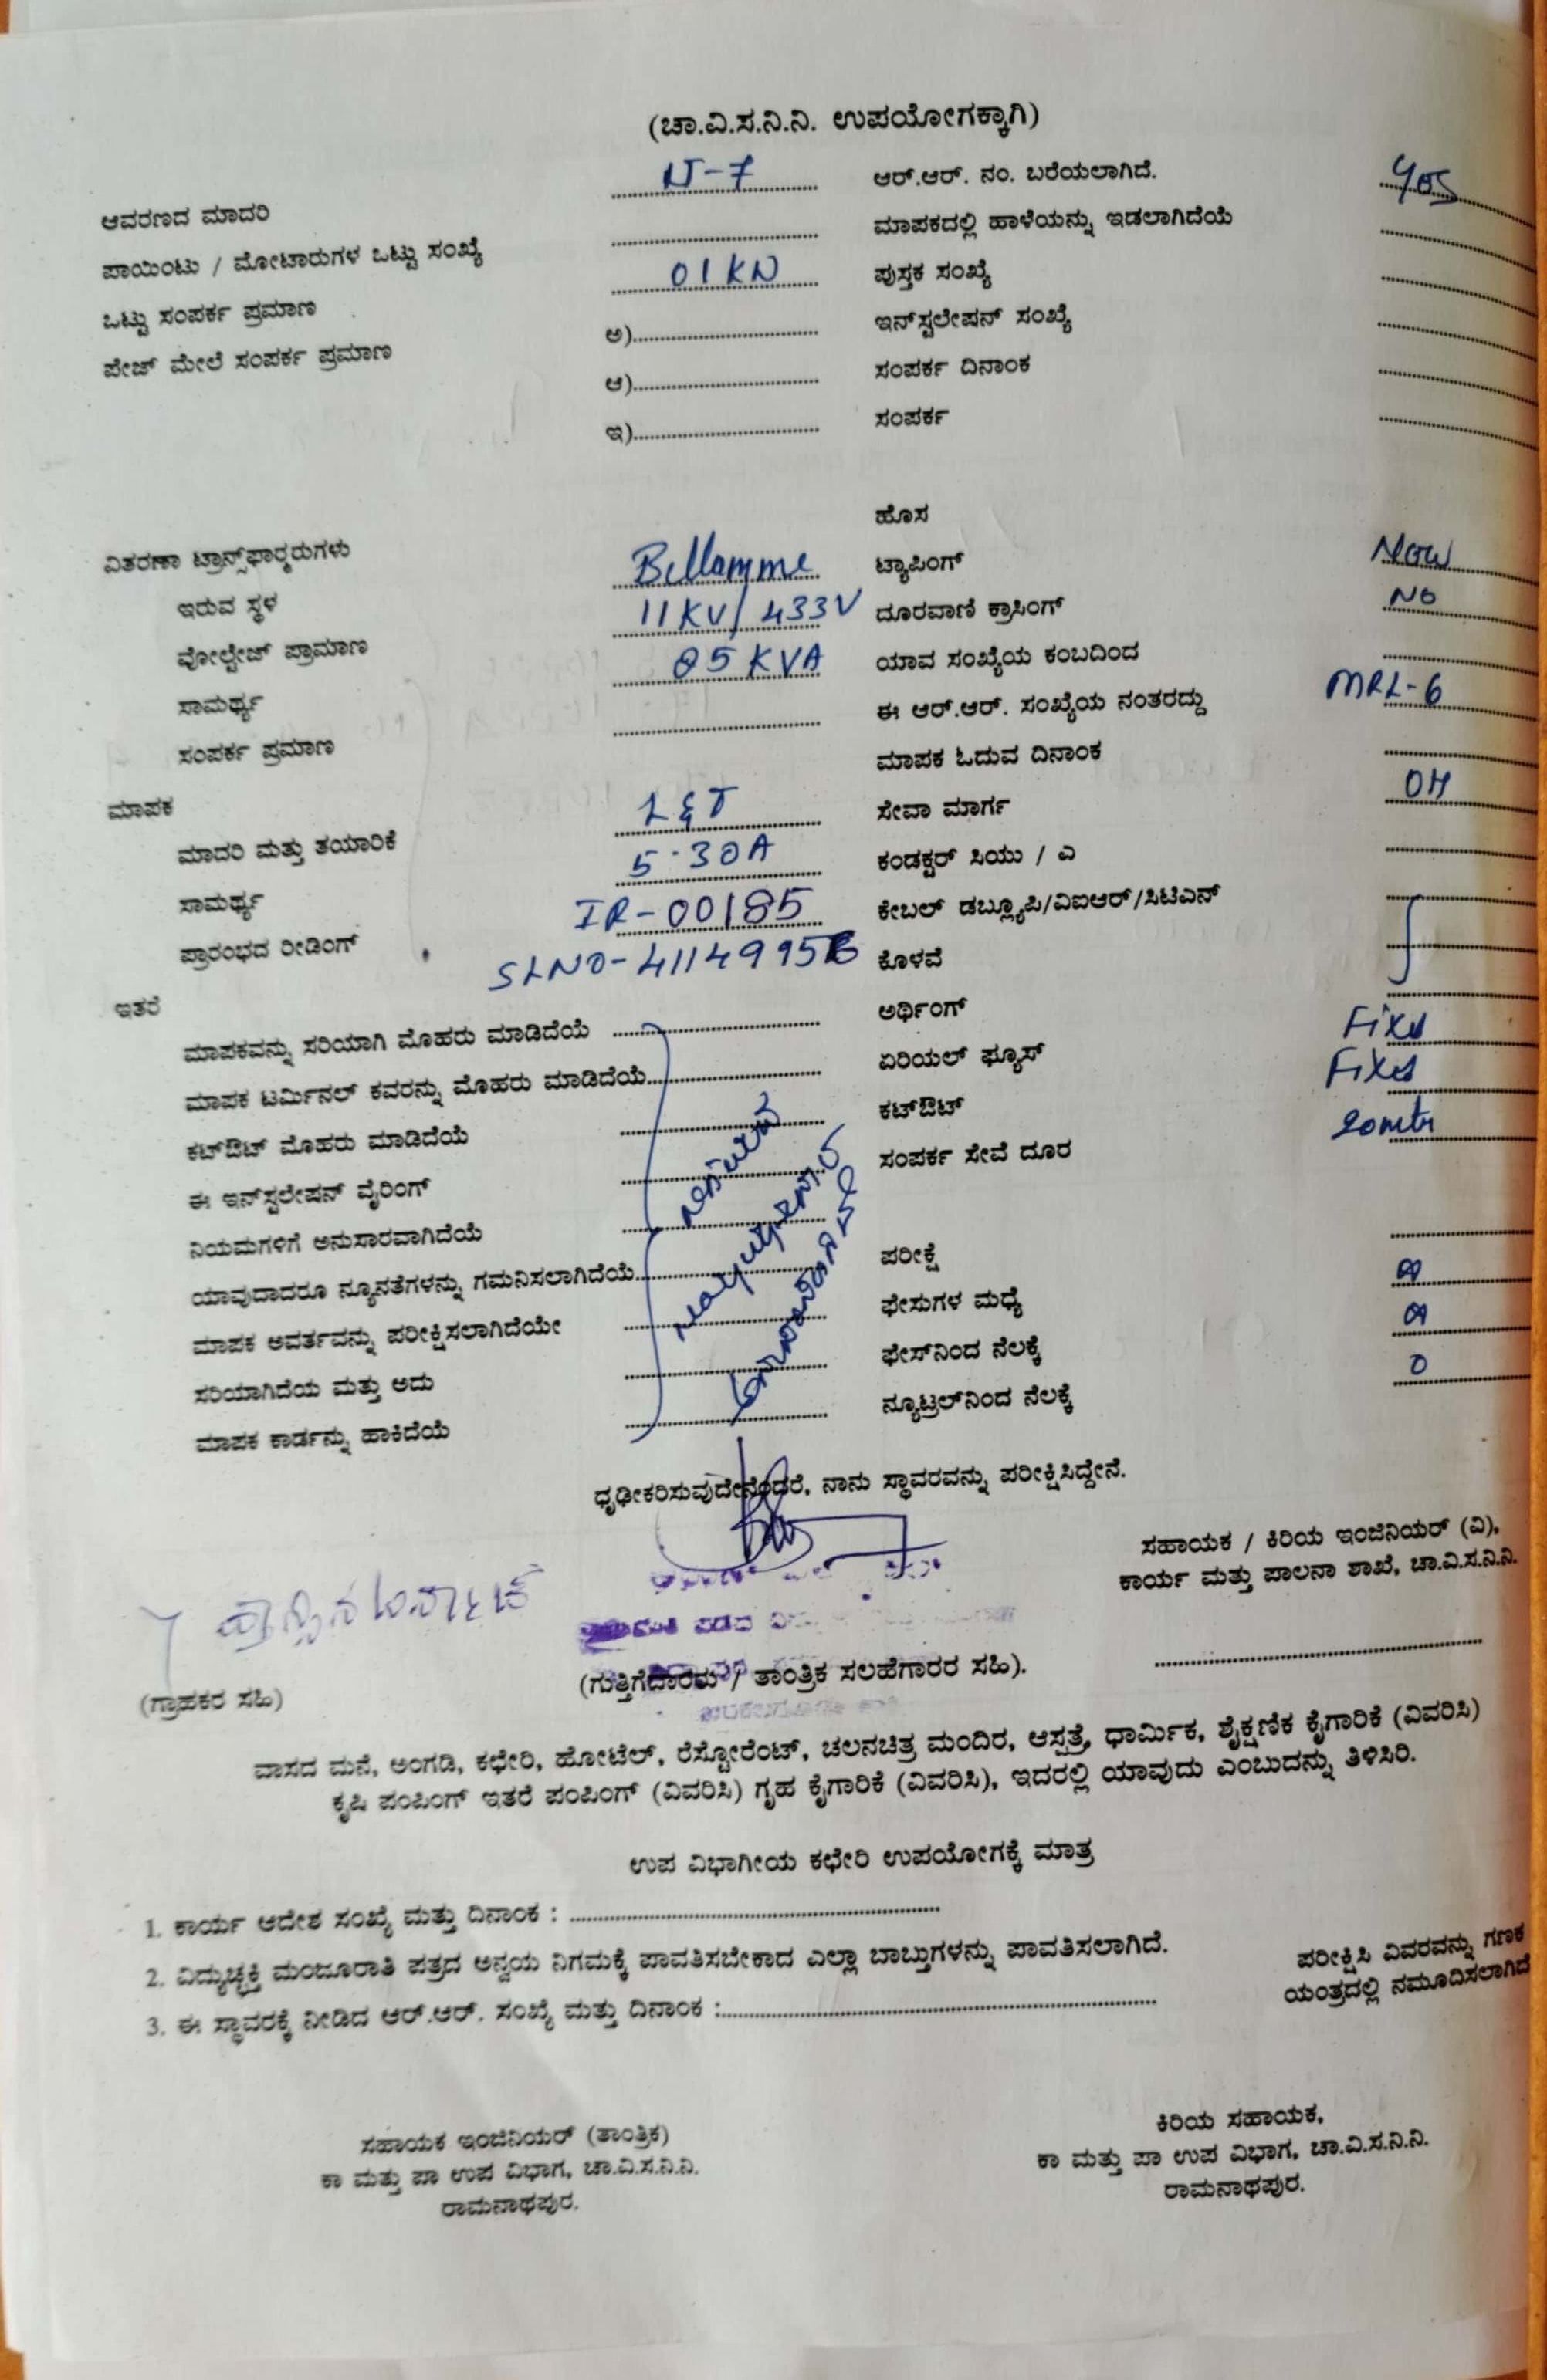 (ಚಾ.ವಿ.ಸ.ನಿ.ನಿ. ಉಪಯೋಗಕ್ಕಾಗಿ)
ಆವರಣದ ಮಾದರಿ N-7 ಆರ್.ಆರ್. ನಂ. ಬರೆಯಲಾಗಿದೆ. Yes
ಪಾಯಿಂಟು / ಮೋಟಾರುಗಳ ಒಟ್ಟು ಸಂಖ್ಯೆ ಮಾಪಕದಲ್ಲಿ ಹಾಳೆಯನ್ನು ಇಡಲಾಗಿದೆಯೆ
ಒಟ್ಟು ಸಂಪರ್ಕ ಪ್ರಮಾಣ 01 KW ಪುಸ್ತಕ ಸಂಖ್ಯೆ
ಪೇಜ್ ಮೇಲೆ ಸಂಪರ್ಕ ಪ್ರಮಾಣ ಅ) ಇನ್‌ಸ್ಟಲೇಷನ್ ಸಂಖ್ಯೆ
ಆ) ಸಂಪರ್ಕ ದಿನಾಂಕ
ಇ) ಸಂಪರ್ಕ
ಹೊಸ
ವಿತರಣಾ ಟ್ರಾನ್ಸ್‌ಫಾರ್ಮರುಗಳು
ಇರುವ ಸ್ಥಳ Bellamme ಟ್ಯಾಪಿಂಗ್ New
ವೋಲ್ಟೇಜ್ ಪ್ರಾಮಾಣ 11 KV / 433V ದೂರವಾಣಿ ಕ್ರಾಸಿಂಗ್ NO
ಸಾಮರ್ಥ್ಯ KVA ಯಾವ ಸಂಖ್ಯೆಯ ಕಂಬದಿಂದ
ಸಂಪರ್ಕ ಪ್ರಮಾಣ ಈ ಆರ್.ಆರ್. ಸಂಖ್ಯೆಯ ನಂತರದ್ದು MRL-6
ಮಾಪಕ ಮಾಪಕ ಓದುವ ದಿನಾಂಕ
ಮಾದರಿ ಮತ್ತು ತಯಾರಿಕೆ L&T ಸೇವಾ ಮಾರ್ಗ OH
ಸಾಮರ್ಥ್ಯ 5-30A ಕಂಡಕ್ಟರ್ ಸಿಯು / ಎ
ಪ್ರಾರಂಭದ ರೀಡಿಂಗ್ IR-00185 ಕೇಬಲ್ ಡಬ್ಲ್ಯೂಪಿ/ವಿಐಆರ್/ಸಿಟಿಎನ್
SLNO- ಕೊಳವೆ
ಇತರೆ
ಮಾಪಕವನ್ನು ಸರಿಯಾಗಿ ಮೊಹರು ಮಾಡಿದೆಯೆ ಅರ್ಥಿಂಗ್ Fixed
ಮಾಪಕ ಟರ್ಮಿನಲ್ ಕವರನ್ನು ಮೊಹರು ಮಾಡಿದೆಯೆ ಏರಿಯಲ್ ಫ್ಯೂಸ್ Fixed
ಕಟ್‌ಔಟ್ ಮೊಹರು ಮಾಡಿದೆಯೆ ಕಟ್‌ಔಟ್ 20mtr
ಈ ಇನ್‌ಸ್ಟಲೇಷನ್ ವೈರಿಂಗ್ ಸಂಪರ್ಕ ಸೇವೆ ದೂರ
ನಿಯಮಗಳಿಗೆ ಅನುಸಾರವಾಗಿದೆಯೆ
ಯಾವುದಾದರೂ ನ್ಯೂನತೆಗಳನ್ನು ಗಮನಿಸಲಾಗಿದೆಯೆ ಪರೀಕ್ಷೆ
ಮಾಪಕ ಅವರ್ತವನ್ನು ಪರೀಕ್ಷಿಸಲಾಗಿದೆಯೇ ಫೇಸುಗಳ ಮಧ್ಯೆ
ಸರಿಯಾಗಿದೆಯ ಮತ್ತು ಅದು ಫೇಸ್‌ನಿಂದ ನೆಲಕ್ಕೆ 0
ಮಾಪಕ ಕಾರ್ಡನ್ನು ಹಾಕಿದೆಯೆ ನ್ಯೂಟ್ರಲ್‌ನಿಂದ ನೆಲಕ್ಕೆ
ಧೃಢೀಕರಿಸುವುದೇನೆಂದರೆ, ನಾನು ಸ್ಥಾವರವನ್ನು ಪರೀಕ್ಷಿಸಿದ್ದೇನೆ.
ಸಹಾಯಕ / ಕಿರಿಯ ಇಂಜಿನಿಯರ್ (ವಿ),
ಕಾರ್ಯ ಮತ್ತು ಪಾಲನಾ ಶಾಖೆ, ಚಾ.ವಿ.ಸ.ನಿ.ನಿ.
(ಗ್ರಾಹಕರ ಸಹಿ) (ಗುತ್ತಿಗೆದಾರರು / ತಾಂತ್ರಿಕ ಸಲಹೆಗಾರರ ಸಹಿ).
ವಾಸದ ಮನೆ, ಅಂಗಡಿ, ಕಛೇರಿ, ಹೋಟೆಲ್, ರೆಸ್ಟೋರೆಂಟ್, ಚಲನಚಿತ್ರ ಮಂದಿರ, ಆಸ್ಪತ್ರೆ, ಧಾರ್ಮಿಕ, ಶೈಕ್ಷಣಿಕ ಕೈಗಾರಿಕೆ (ವಿವರಿಸಿ)
ಕೃಷಿ ಪಂಪಿಂಗ್ ಇತರೆ ಪಂಪಿಂಗ್ (ವಿವರಿಸಿ) ಗೃಹ ಕೈಗಾರಿಕೆ (ವಿವರಿಸಿ), ಇದರಲ್ಲಿ ಯಾವುದು ಎಂಬುದನ್ನು ತಿಳಿಸಿರಿ.
ಉಪ ವಿಭಾಗೀಯ ಕಛೇರಿ ಉಪಯೋಗಕ್ಕೆ ಮಾತ್ರ
1. ಕಾರ್ಯ ಆದೇಶ ಸಂಖ್ಯೆ ಮತ್ತು ದಿನಾಂಕ :
2. ವಿದ್ಯುಚ್ಛಕ್ತಿ ಮಂಜೂರಾತಿ ಪತ್ರದ ಅನ್ವಯ ನಿಗಮಕ್ಕೆ ಪಾವತಿಸಬೇಕಾದ ಎಲ್ಲಾ ಬಾಬ್ತುಗಳನ್ನು ಪಾವತಿಸಲಾಗಿದೆ.
3. ಈ ಸ್ಥಾವರಕ್ಕೆ ನೀಡಿದ ಆರ್.ಆರ್. ಸಂಖ್ಯೆ ಮತ್ತು ದಿನಾಂಕ :
ಪರೀಕ್ಷಿಸಿ ವಿವರವನ್ನು ಗಣಕ
ಯಂತ್ರದಲ್ಲಿ ನಮೂದಿಸಲಾಗಿದೆ
ಸಹಾಯಕ ಇಂಜಿನಿಯರ್ (ತಾಂತ್ರಿಕ)
ಕಾ ಮತ್ತು ಪಾ ಉಪ ವಿಭಾಗ, ಚಾ.ವಿ.ಸ.ನಿ.ನಿ.
ರಾಮನಾಥಪುರ.
ಕಿರಿಯ ಸಹಾಯಕ,
ಕಾ ಮತ್ತು ಪಾ ಉಪ ವಿಭಾಗ, ಚಾ.ವಿ.ಸ.ನಿ.ನಿ.
ರಾಮನಾಥಪುರ.